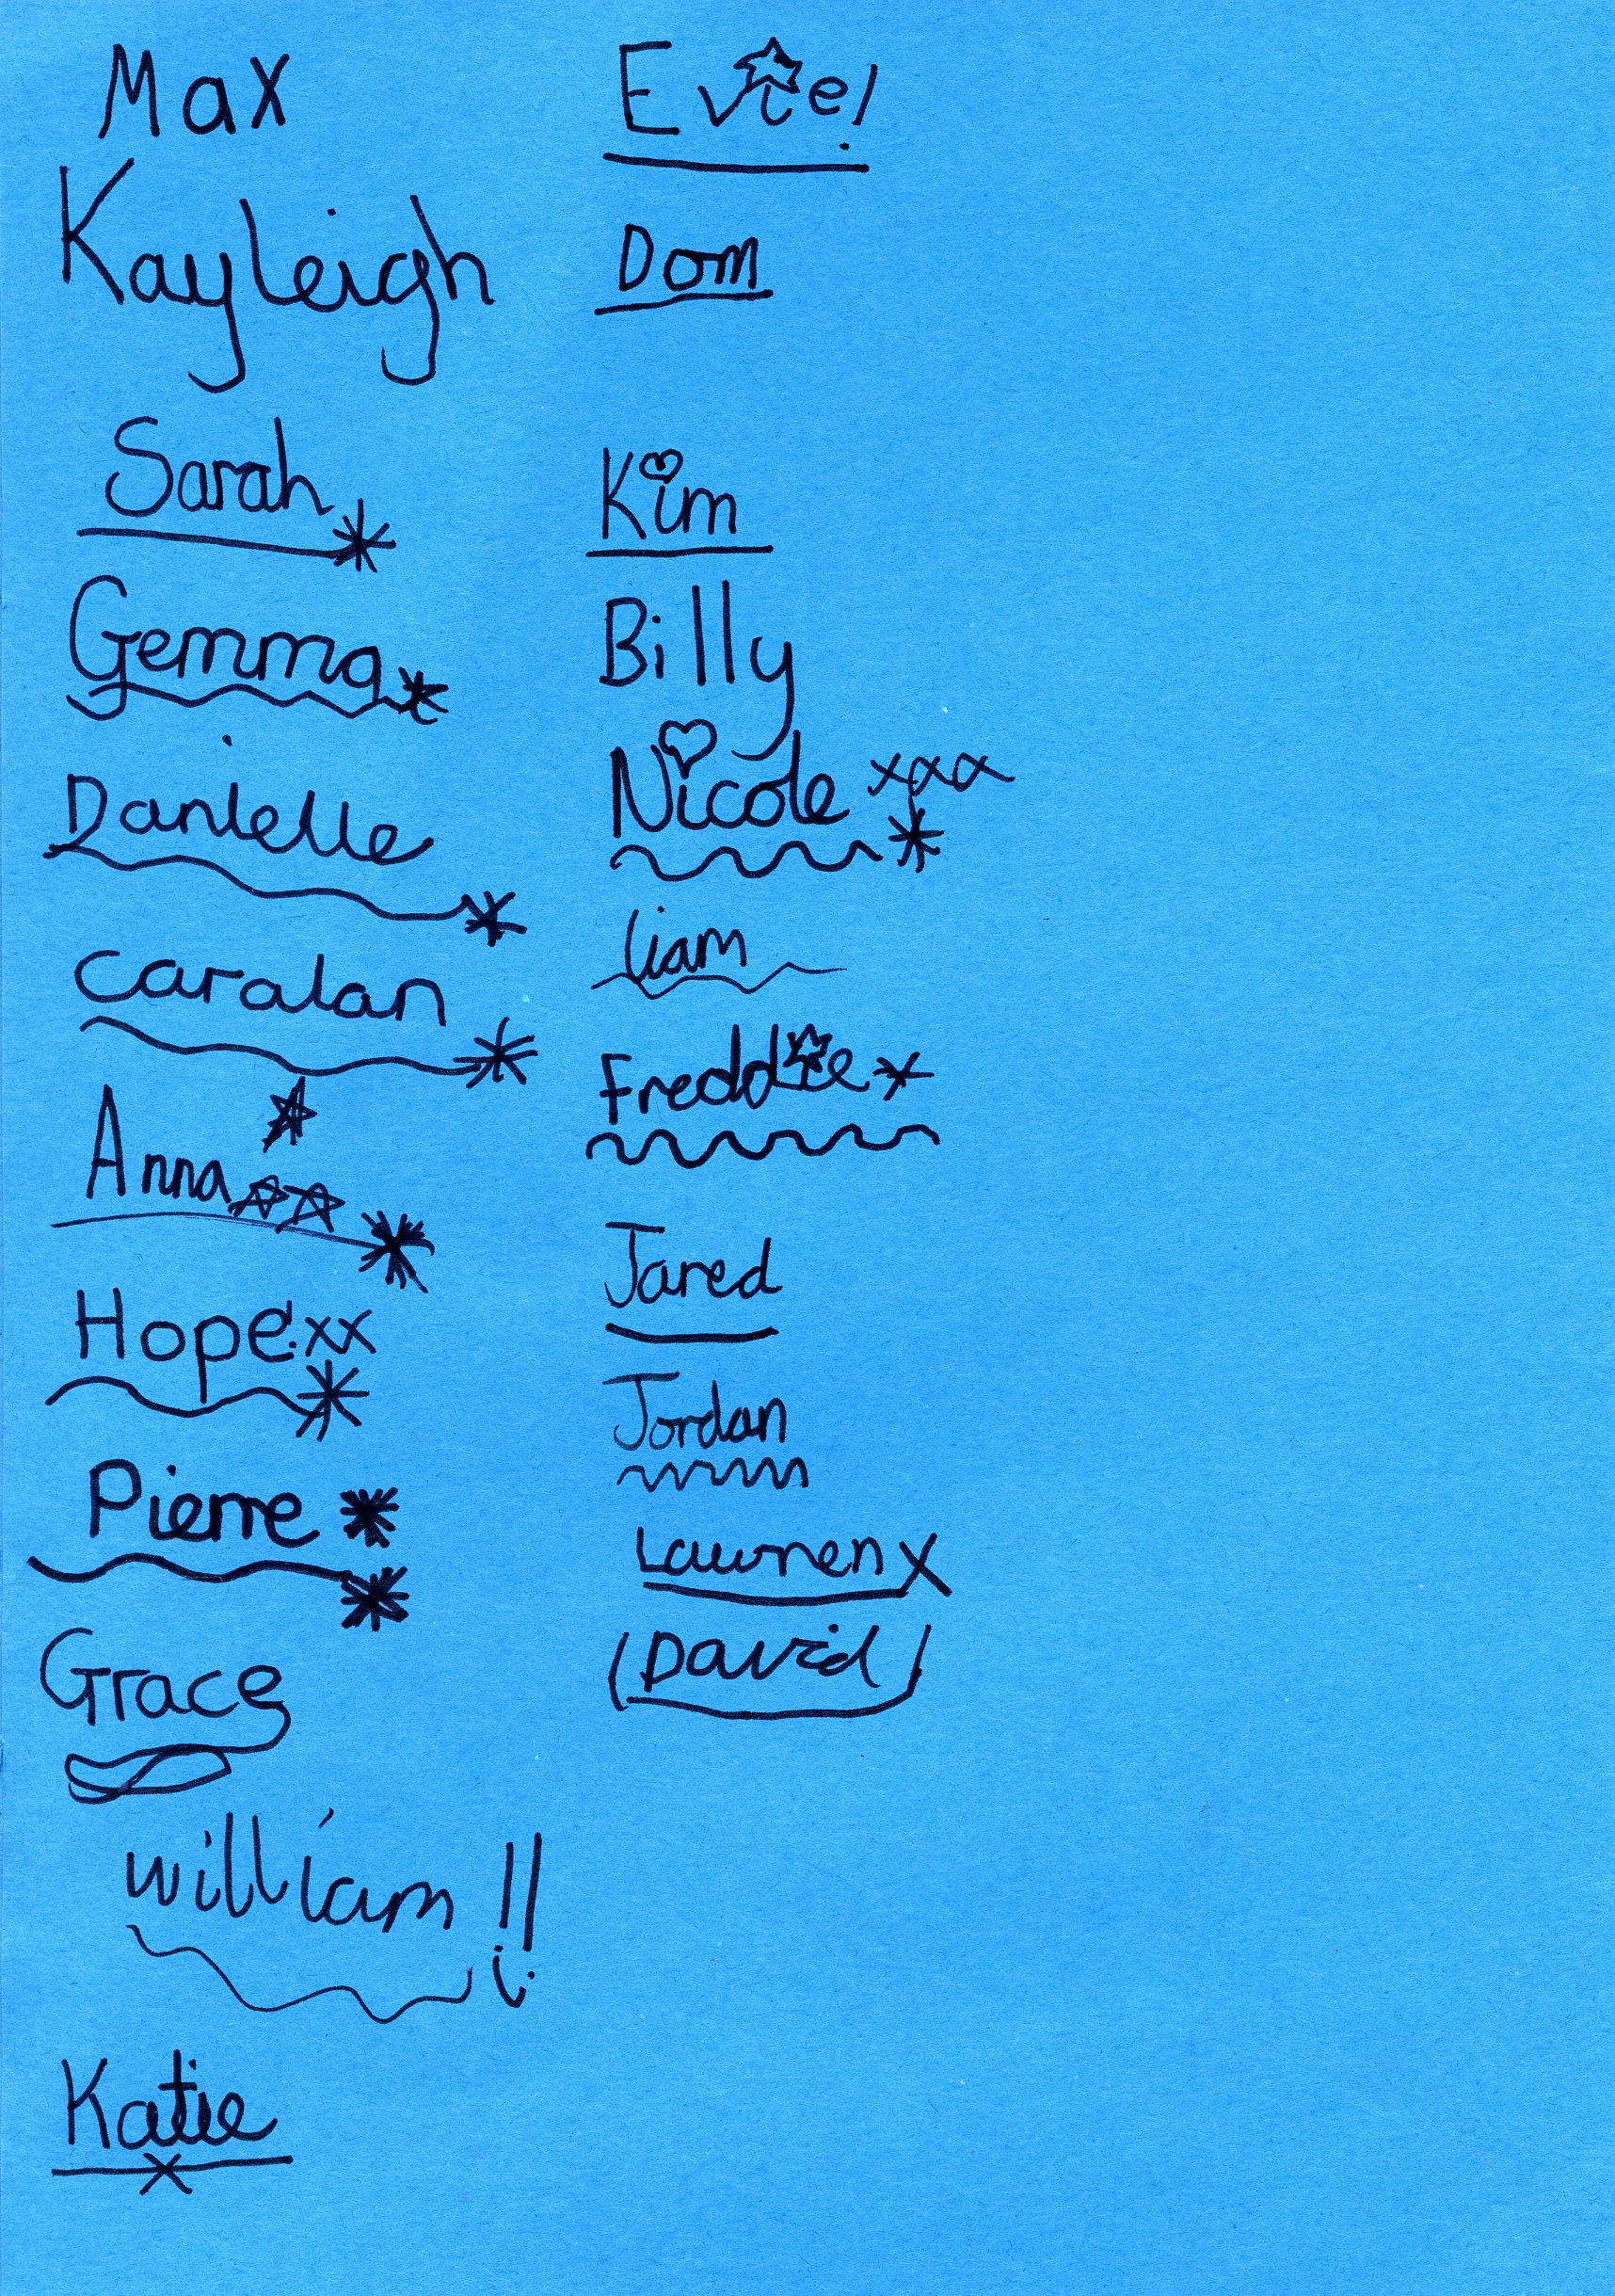 Max
Kayleigh
Sarah
Gemma
Danielle
Caralan
Anna
Hope! xx
Pierre
Grace
william !!
Katie
x
Evie!
Dom
Kim
Billy
Nicole xxx
Liam
Freddie x
Jared
Jordan
Lauren x
(David)